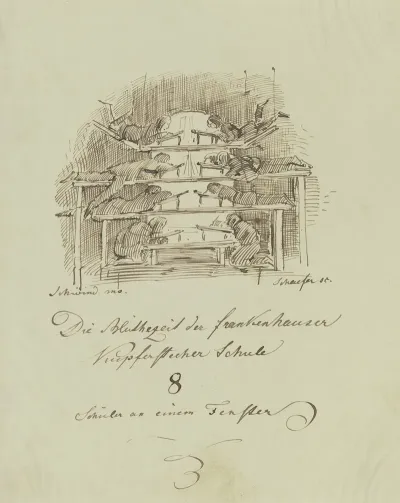 Schwind inv.
Schaefer sc.
Die Blüthezeit der frankenhauser
Kupferstecher Schule
8
Schüler an einem Fenster